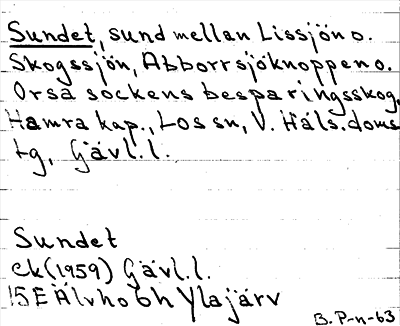 Sundet, sund mellan Lissjön o.
Skogssjön, Abborrsjöknoppen o.
Orsa sockens besparingsskog,
Hamra kap., Los sn, V. Häls. doms
tg, Gävl.l.
Sundet
ek (1959) Gävl.l.
15E Älvho 6h Ylajärv
B. P-n-63